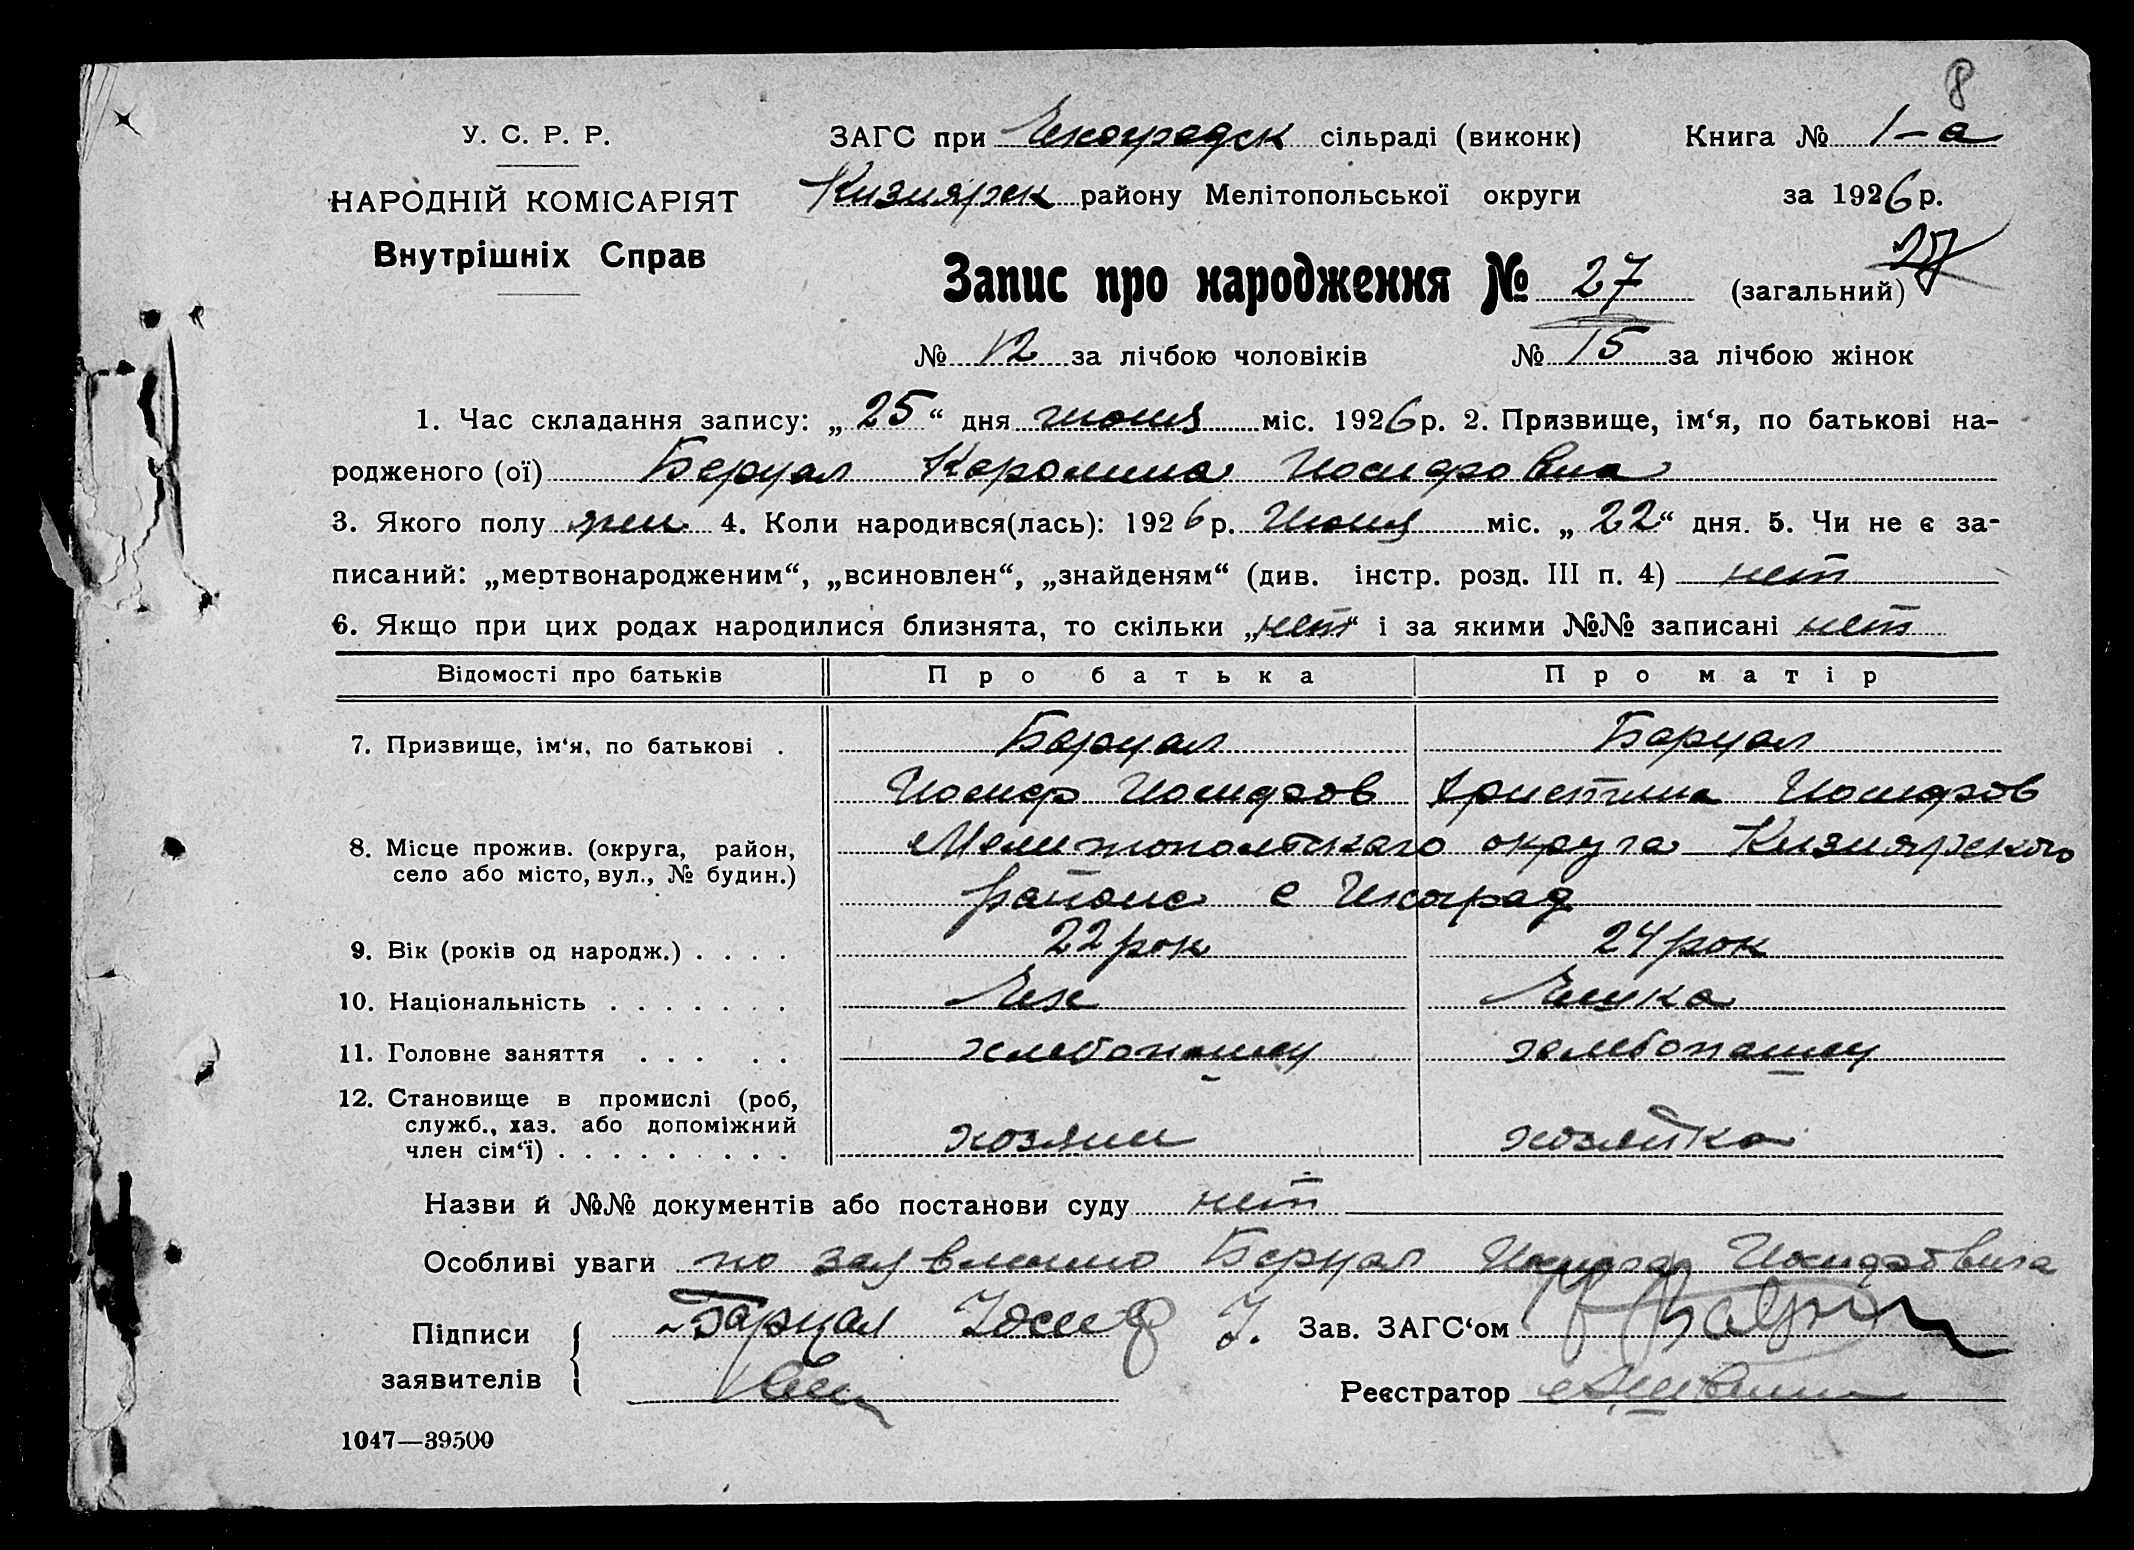 8
У. С. Р. Р.
ЗАГС при Чехоградск сільраді (виконк)
Книга № 1-а
НАРОДНІЙ КОМІСАРІЯТ
Кизиярск району Мелітопольської округи
за 1926 р.
Внутрішніх Справ
Запис про народження № 27 (загальний) 27
№ 12 за лічбою чоловіків № 15 за лічбою жінок
1. Час складання запису: „25“ дня июня міс. 1926 р. 2. Призвище, ім‘я, по батькові на-
родженого (ої) Барцал Каролина Иосифовна
3. Якого полу жен 4. Коли народився(лась): 1926 р. Июня міс. „22“ дня. 5. Чи не є за-
писаний: „мертвонародженим“, „всиновлен“, „знайденям“ (див. інстр. розд. III п. 4) нет
6. Якщо при цих родах народилися близнята, то скільки „нет“ і за якими №№ записані нет
Відомості про батьків Про батька Про матір
7. Призвище, ім‘я, по батькові . Барцал Барцал
Иосиф Иосифов Христина Иосифов
8. Місце прожив. (округа, район, село або місто, вул., № будин.) Мелитопольского округа Кизиярского
района с Чехоград
9. Вік (років од народж.) . . . . 22 рок 24 рок
10. Національність . . . . . . . Чех Чешка
11. Головне заняття . . . . . хлебопашец хлебопашец
12. Становище в промислі (роб,
служб., хаз. або допоміжний
член сім‘ї) . . . . . . . . . хозяин хозяйка
Назви й №№ документів або постанови суду нет
Особливі уваги по заявлению Барцал Иосифа Иосифовича
Підписи заявителів Барцал Иосиф И.
Зав. ЗАГС‘ом
Реєстратор
1047—39500